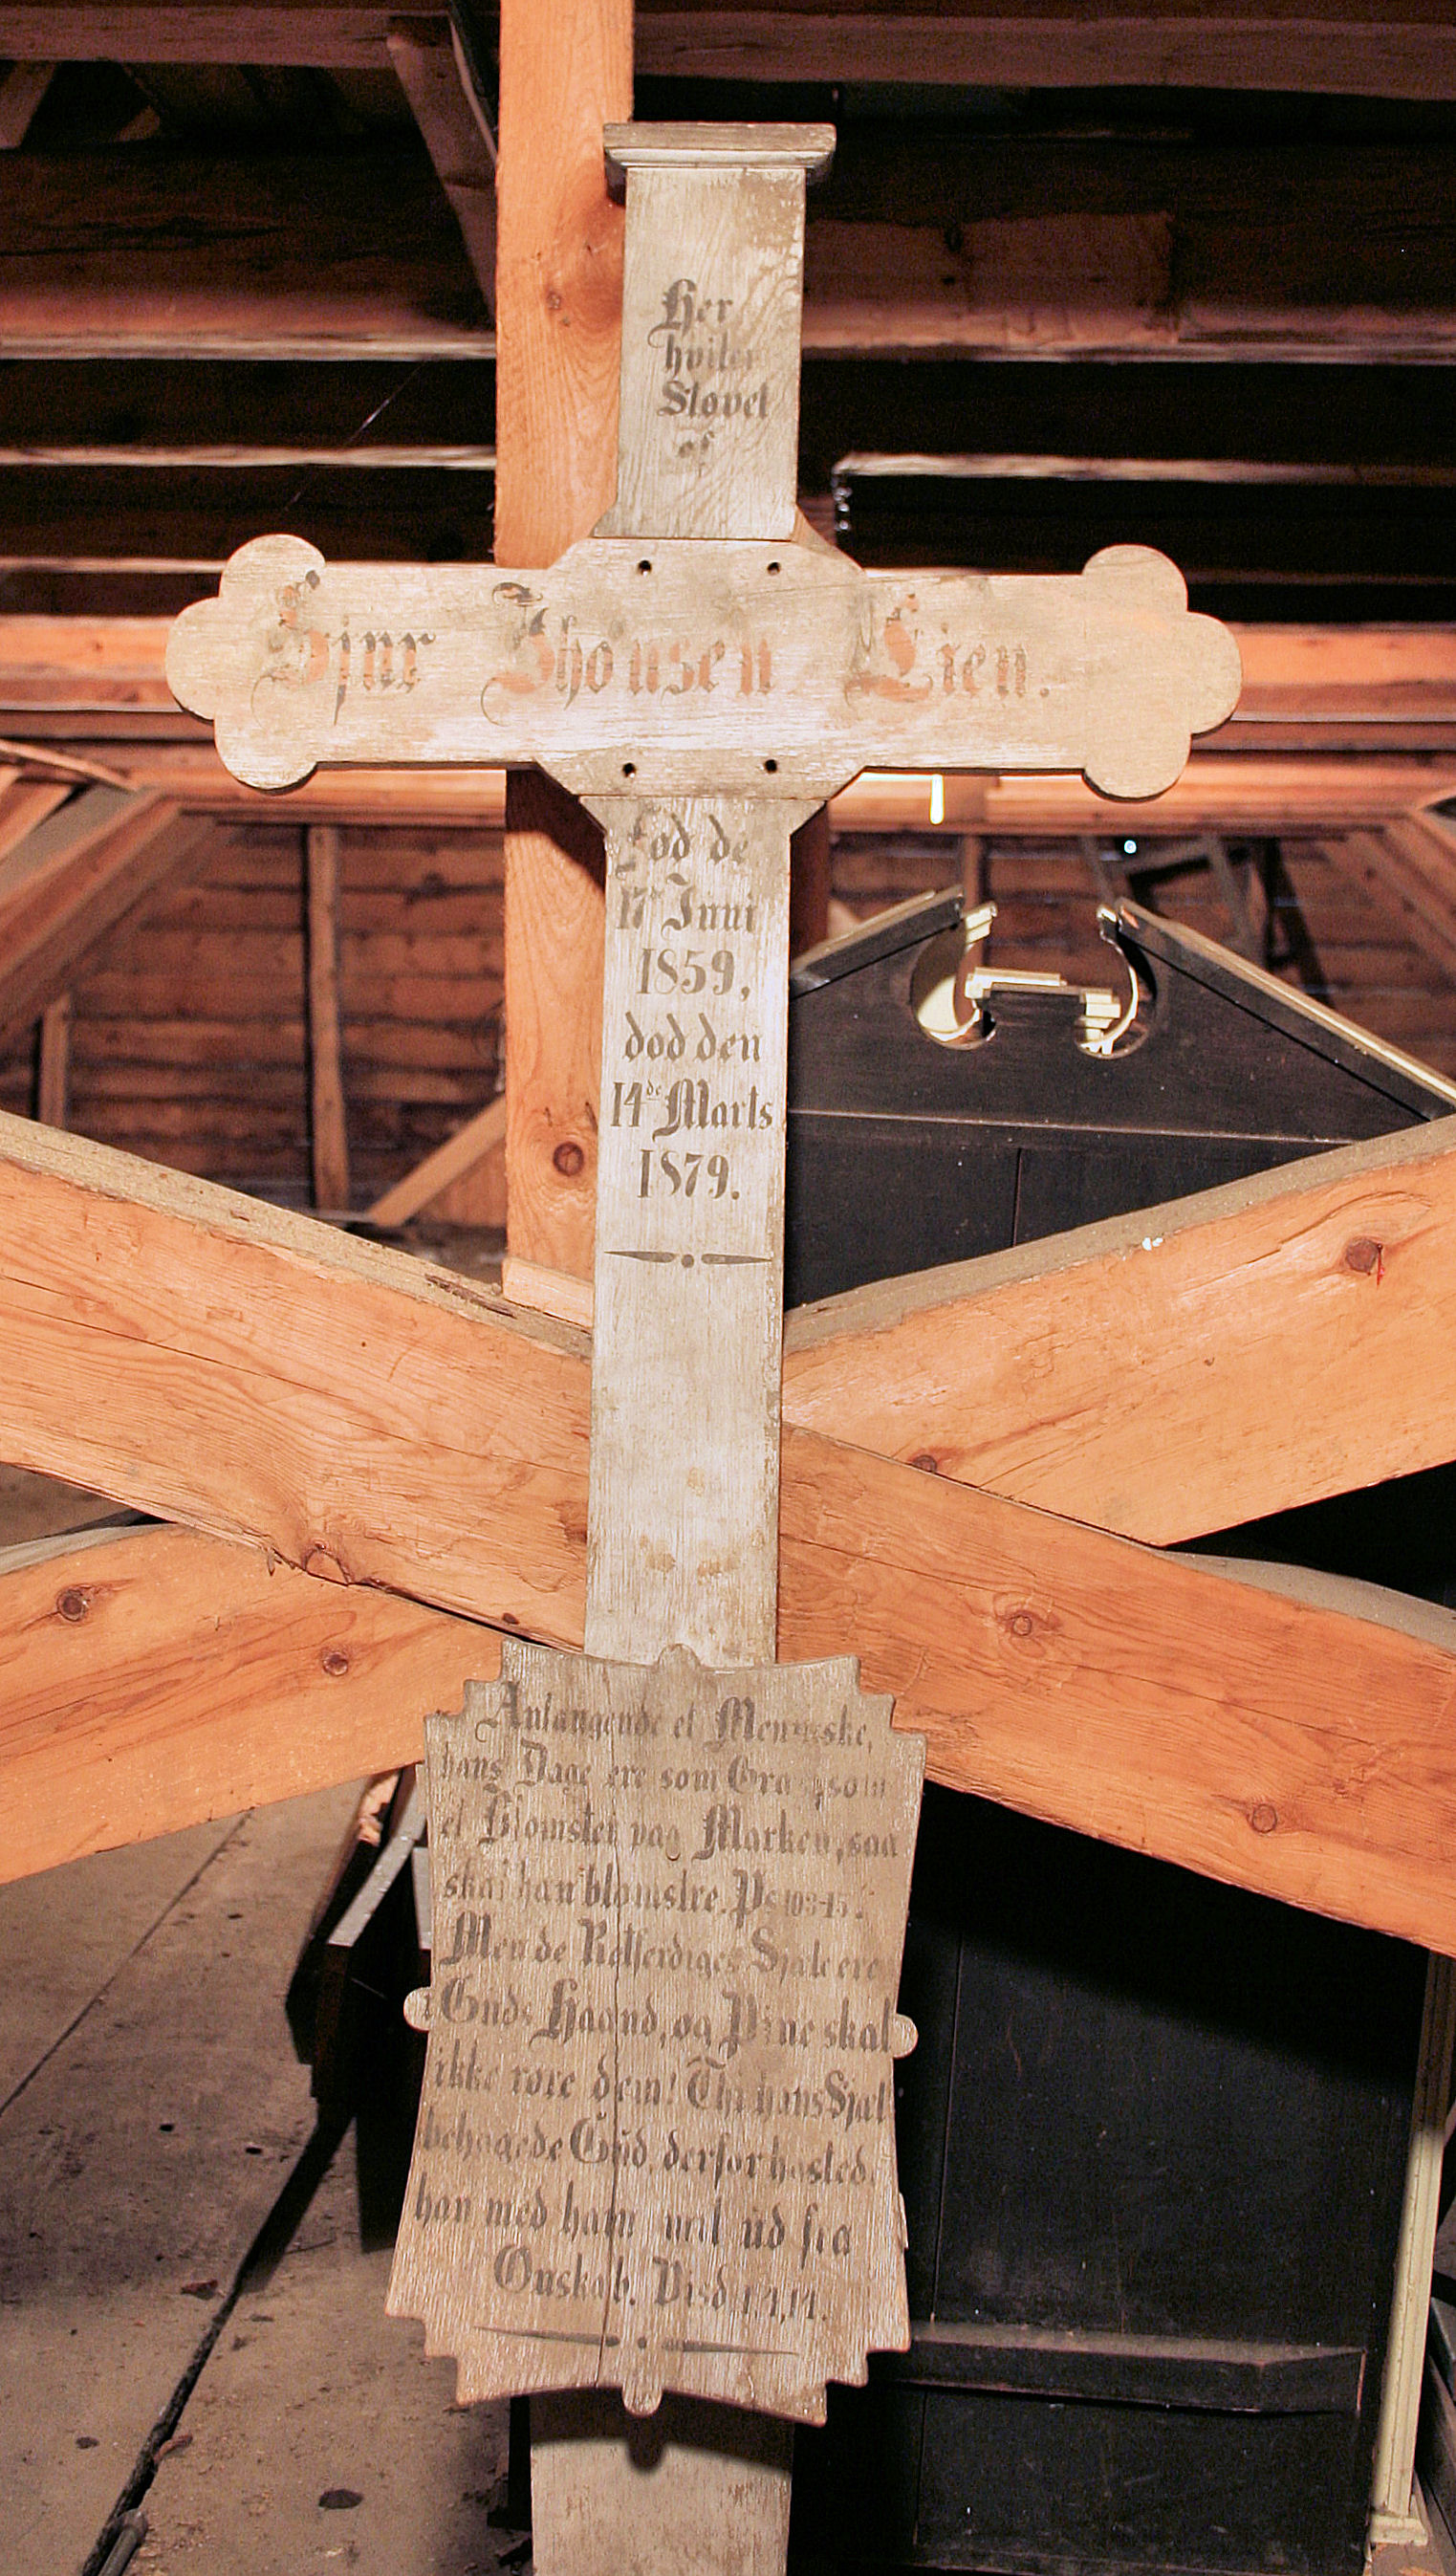 Her
hviler
Støvet
af
Thonsen Lien.
Fød de
17de Juni
1859,
død den
14de Marts
1879.
Anlangende et Menneske,
hans Dage ere som Græs, som
et Blomster paa Marken, saa
skal han blomstre. Ps 103-15.
Men de Retferdiges Sjæle ere
i Guds Haand, og Pine skal
ikke røre dem! Thi hans Sjæl
behagede Gud, derfor hasted
han med ham ud fra
Onskab. Visd.